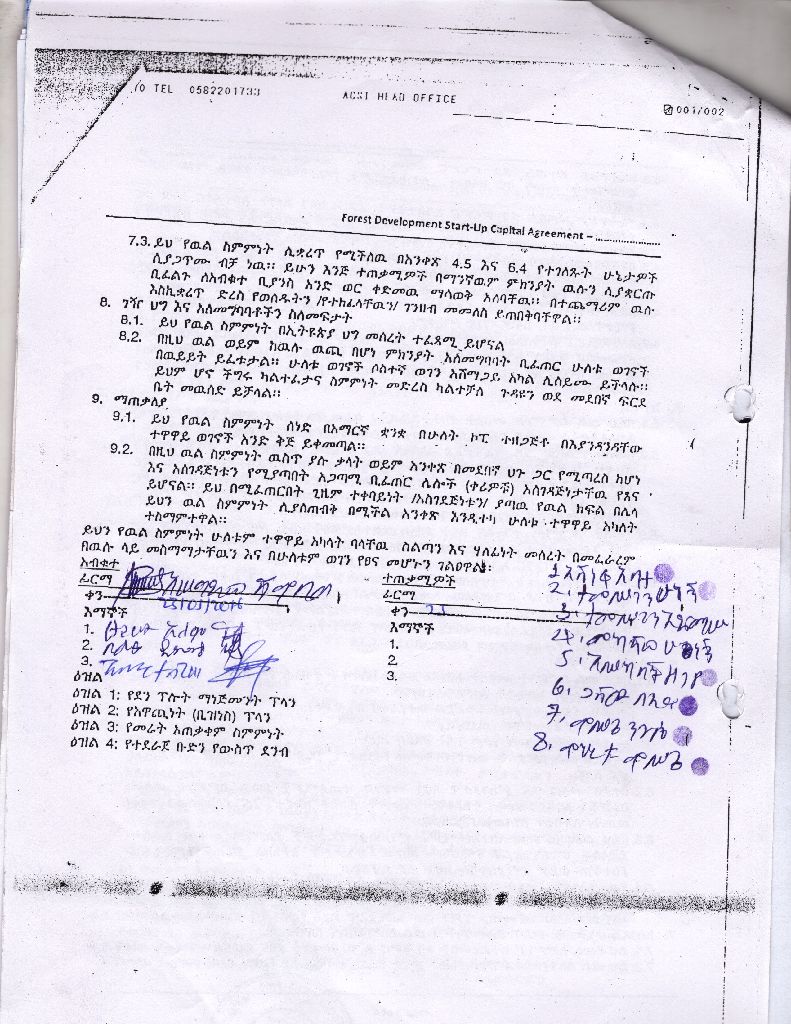 /O TEL 0582201733 ACSI HEAD OFFICE 001/002
Forest Development Start-Up Capital Agreement – ........................
7.3. ይህ የዉል ስምምነት ሊቋረጥ የሚችለዉ በአንቀጽ 4.5 እና 6.4 የተገለጹት ሁኔታዎች
ሲያጋጥሙ ብቻ ነዉ፡፡ ይሁን እንጅ ተጠቃሚዎች በማንኛዉም ምክንያት ዉሉን ሊያቋርጡ
ቢፈልጉ ለአብቁተ ቢያንስ አንድ ወር ቀድመዉ ማሳወቅ አለባቸዉ፡፡ በተጨማሪም ዉሉ
እስኪቋረጥ ድረስ የወሰዱትን /የተከፈላቸዉን/ ገንዘብ መመለስ ይጠበቅባቸዋል፡፡
8. ገዥ ህግ እና አለመግባባቶችን ስለመፍታት
8.1. ይህ የዉል ስምምነት በኢትዮጵያ ህግ መሰረት ተፈጻሚ ይሆናል
8.2. በዚህ ዉል ወይም ከዉሉ ዉጪ በሆነ ምክንያት አለመግባባት ቢፈጠር ሁለቱ ወገኖች
በዉይይት ይፈቱታል፡፡ ሁለቱ ወገኖች ሶስተኛ ወገን አሸማጋይ አካል ሊሰይሙ ይችላሉ፡፡
ይህም ሆኖ ችግሩ ካልተፈታና ስምምነት መድረስ ካልተቻለ ጉዳዩን ወደ መደበኛ ፍርድ
ቤት መዉሰድ ይቻላል፡፡
9. ማጠቃለያ
9.1. ይህ የዉል ስምምነት ሰነድ በአማርኛ ቋንቋ በሁለት ኮፒ ተዘጋጅቶ በእያንዳንዳቸው
ተዋዋይ ወገኖች አንድ ቅጅ ይቀመጣል፡፡
9.2. በዚህ ዉል ስምምነት ዉስጥ ያሉ ቃላት ወይም አንቀጽ በመደበኛ ህጉ ጋር የሚጣረስ ከሆነ
እና አስገዳጅነቱን የሚያጣበት አጋጣሚ ቢፈጠር ሌሎች (ቀሪዎቹ) አስገዳጅነታቸዉ የጸና
ይሆናል፡፡ ይህ በሚፈጠርበት ጊዜም ተቀባይነት /አስገደጅነቱን/ ያጣዉ የዉል ክፍል በሌላ
ይህን ዉል ስምምነት ሊያስጠብቅ በሚችል አንቀጽ እንዲተካ ሁለቱ ተዋዋይ አካላት
ተስማምተዋል፡፡
ይህን የዉል ስምምነት ሁለቱም ተዋዋይ አካላት ባላቸዉ ስልጣን እና ሃለፊነት መሰረት በመፈራረም
በዉሉ ላይ መስማማታቸዉን እና በሁለቱም ወገን የፀና መሆኑን ገልፀዋል፡
አብቁተ ተጠቃሚዎች
ፊርማ ፊርማ
ቀን ቀን
እማኞች እማኞች
1. 1.
2. 2
3. 3.
ዕዝል
ዕዝል 1: የደን ፕሎት ማነጅመንት ፕላን
ዕዝል 2: የአዋጪነት (ቢዝነስ) ፕላን
ዕዝል 3: የመሬት አጠቃቀም ስምምነት
ዕዝል 4: የተደራጀ ቡድን የውስጥ ደንብ